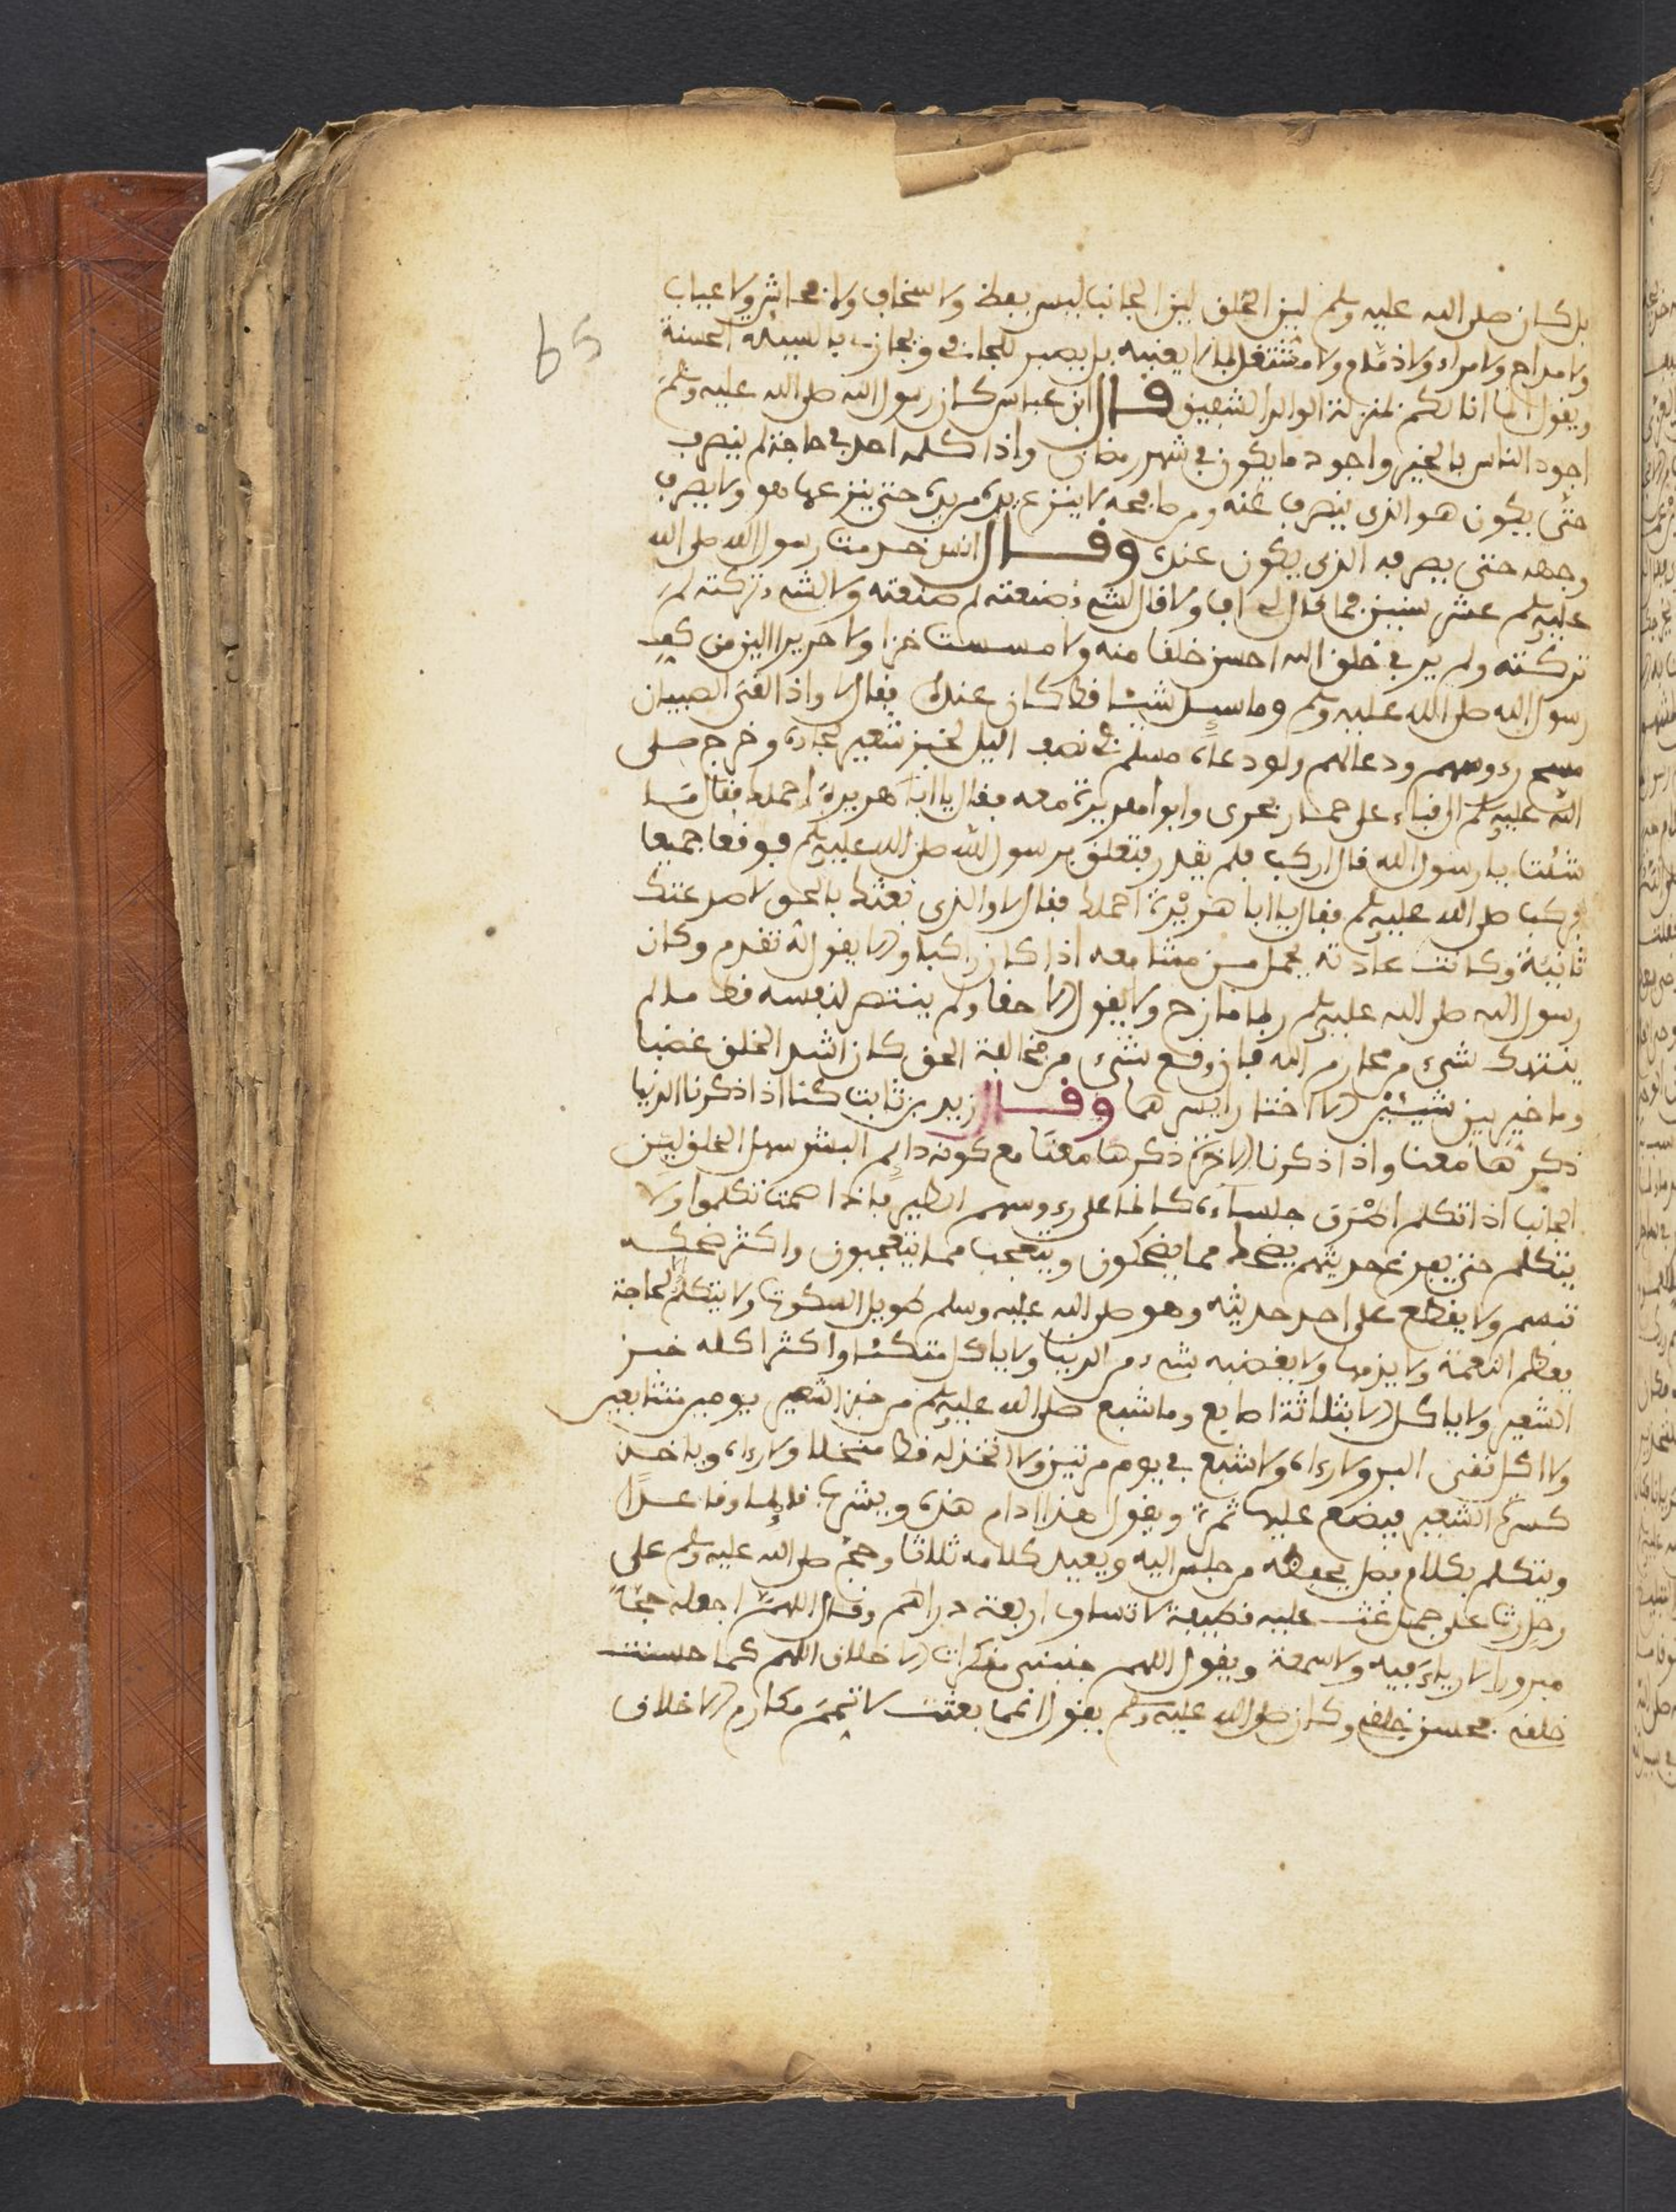 بل كان صلى الله عليه وسلم لين الخلق لين الجانب ليس بفظ ولا سخاب ولا فحاش ولا عياب
ولا مداح ولا مراء ولا ذمام ولا مشتغل لما لا يعنيه بل يصبر للجافي ويجازي بالسيئة الحسنة
ويقول انما انا لكم بمنزلة الوالد الشفيق قال ابن عباس كان رسول الله صلى الله عليه وسلم
اجود الناس بالخير واجود ما يكون في شهر رمضان واذا كلمه احد في حاجة لم ينصرف
حتى يكون هو الذي ينصرف عنه ومن صافحه لا ينزع يده من يده حتى ينزعها هو ولا يصرف
وجهه حتى يصرفه الذي يكون عنده وقال انس خدمت رسول الله صلى الله
عليه وسلم عشر سنين فما قال لي اف ولا قال لشيء صنعته لم صنعته ولا لشيء تركته لم
تركته ولم ير في خلق الله احسن خلقا منه ولا مسست خزا ولا حريرا الين من كف
رسول الله صلى الله عليه وسلم وما سيل شيئا قط كان عنده فقال لا واذا لقي الصبيان
مسح رءوسهم ودعا لهم ولو دعاه مسلم في نصف اليل لخبز شعير لجاءه وخرج صلى
الله عليه وسلم الى قباء على حمار عري وابو هريرة معه فقال يا ابا هريرة احملك فقال ما
شئت يا رسول الله قال اركب فلم يقدر فتعلق برسول الله صلى الله عليه وسلم فوقعا جميعا
فركب صلى الله عليه وسلم فقال يا ابا هريرة احملك فقال لا والذي بعثك بالحق لا صرعتك
ثانية وكانت عادته يحمل من مشا معه اذا كان راكبا والا يقول له تقدم وكان
رسول الله صلى الله عليه وسلم ربما مازح ولا يقول الا حقا ولم ينتصر لنفسه قط ما لم
ينتهك شيء من محارم الله فان وقع شيء من مخالفة الحق كان اشد الخلق غضبا
وما خير بين شيئين الا اختار ايسرهما وقال زيد بن ثابت كنا اذا ذكرنا الدنيا
ذكرها معنا واذا ذكرنا الاخرة ذكرها معنا مع كونه دايم البشر سهل الخلق لين
الجانب اذا تكلم اطرق جلساءه كانما على رءوسهم الطير فاذا صمت تكلموا ولا
يتكلم حتى يفرغ حديثهم يضحك مما يضحكون ويتعجب مما يتعجبون واكثر ضحكه
تبسم ولا يقطع على احد حديثه وهو صلى الله عليه وسلم طويل السكوت ولا يتكلم الا لحاجة
يعظم النعمة ولا يذمها ولا يغضبه شيء من الدنيا ولا ياكل متكئا واكثر اكله خبز
الشعير ولا ياكل الا بثلاثة اصابع وما شبع صلى الله عليه وسلم من خبز الشعير يومين متتابعين
ولا اكل نقي البر ولا رءاه ولا شبع في يوم مرتين ولا اتخذ له قط منخلا ولا رءاه وياخذ
كسرة الشعير فيضع عليها ثمرة ويقول هذا ادام هذه ويشرب قايما وقاعدا
ويتكلم بكلام فصل يحفظه من جلس اليه ويعيد كلامه ثلاثا وحج صلى الله عليه وسلم على
رحل رث على جمل غث عليه قطيفة لا تساوي اربعة دراهم وقال اللهم اجعله حجا
مبرورا لا رياء فيه ولا سمعة ويقول اللهم جنبني منكرات الاخلاق اللهم كما حسنت
خلقي فحسن خلقي وكان صلى الله عليه وسلم يقول انما بعثت لاتمم مكارم الاخلاق